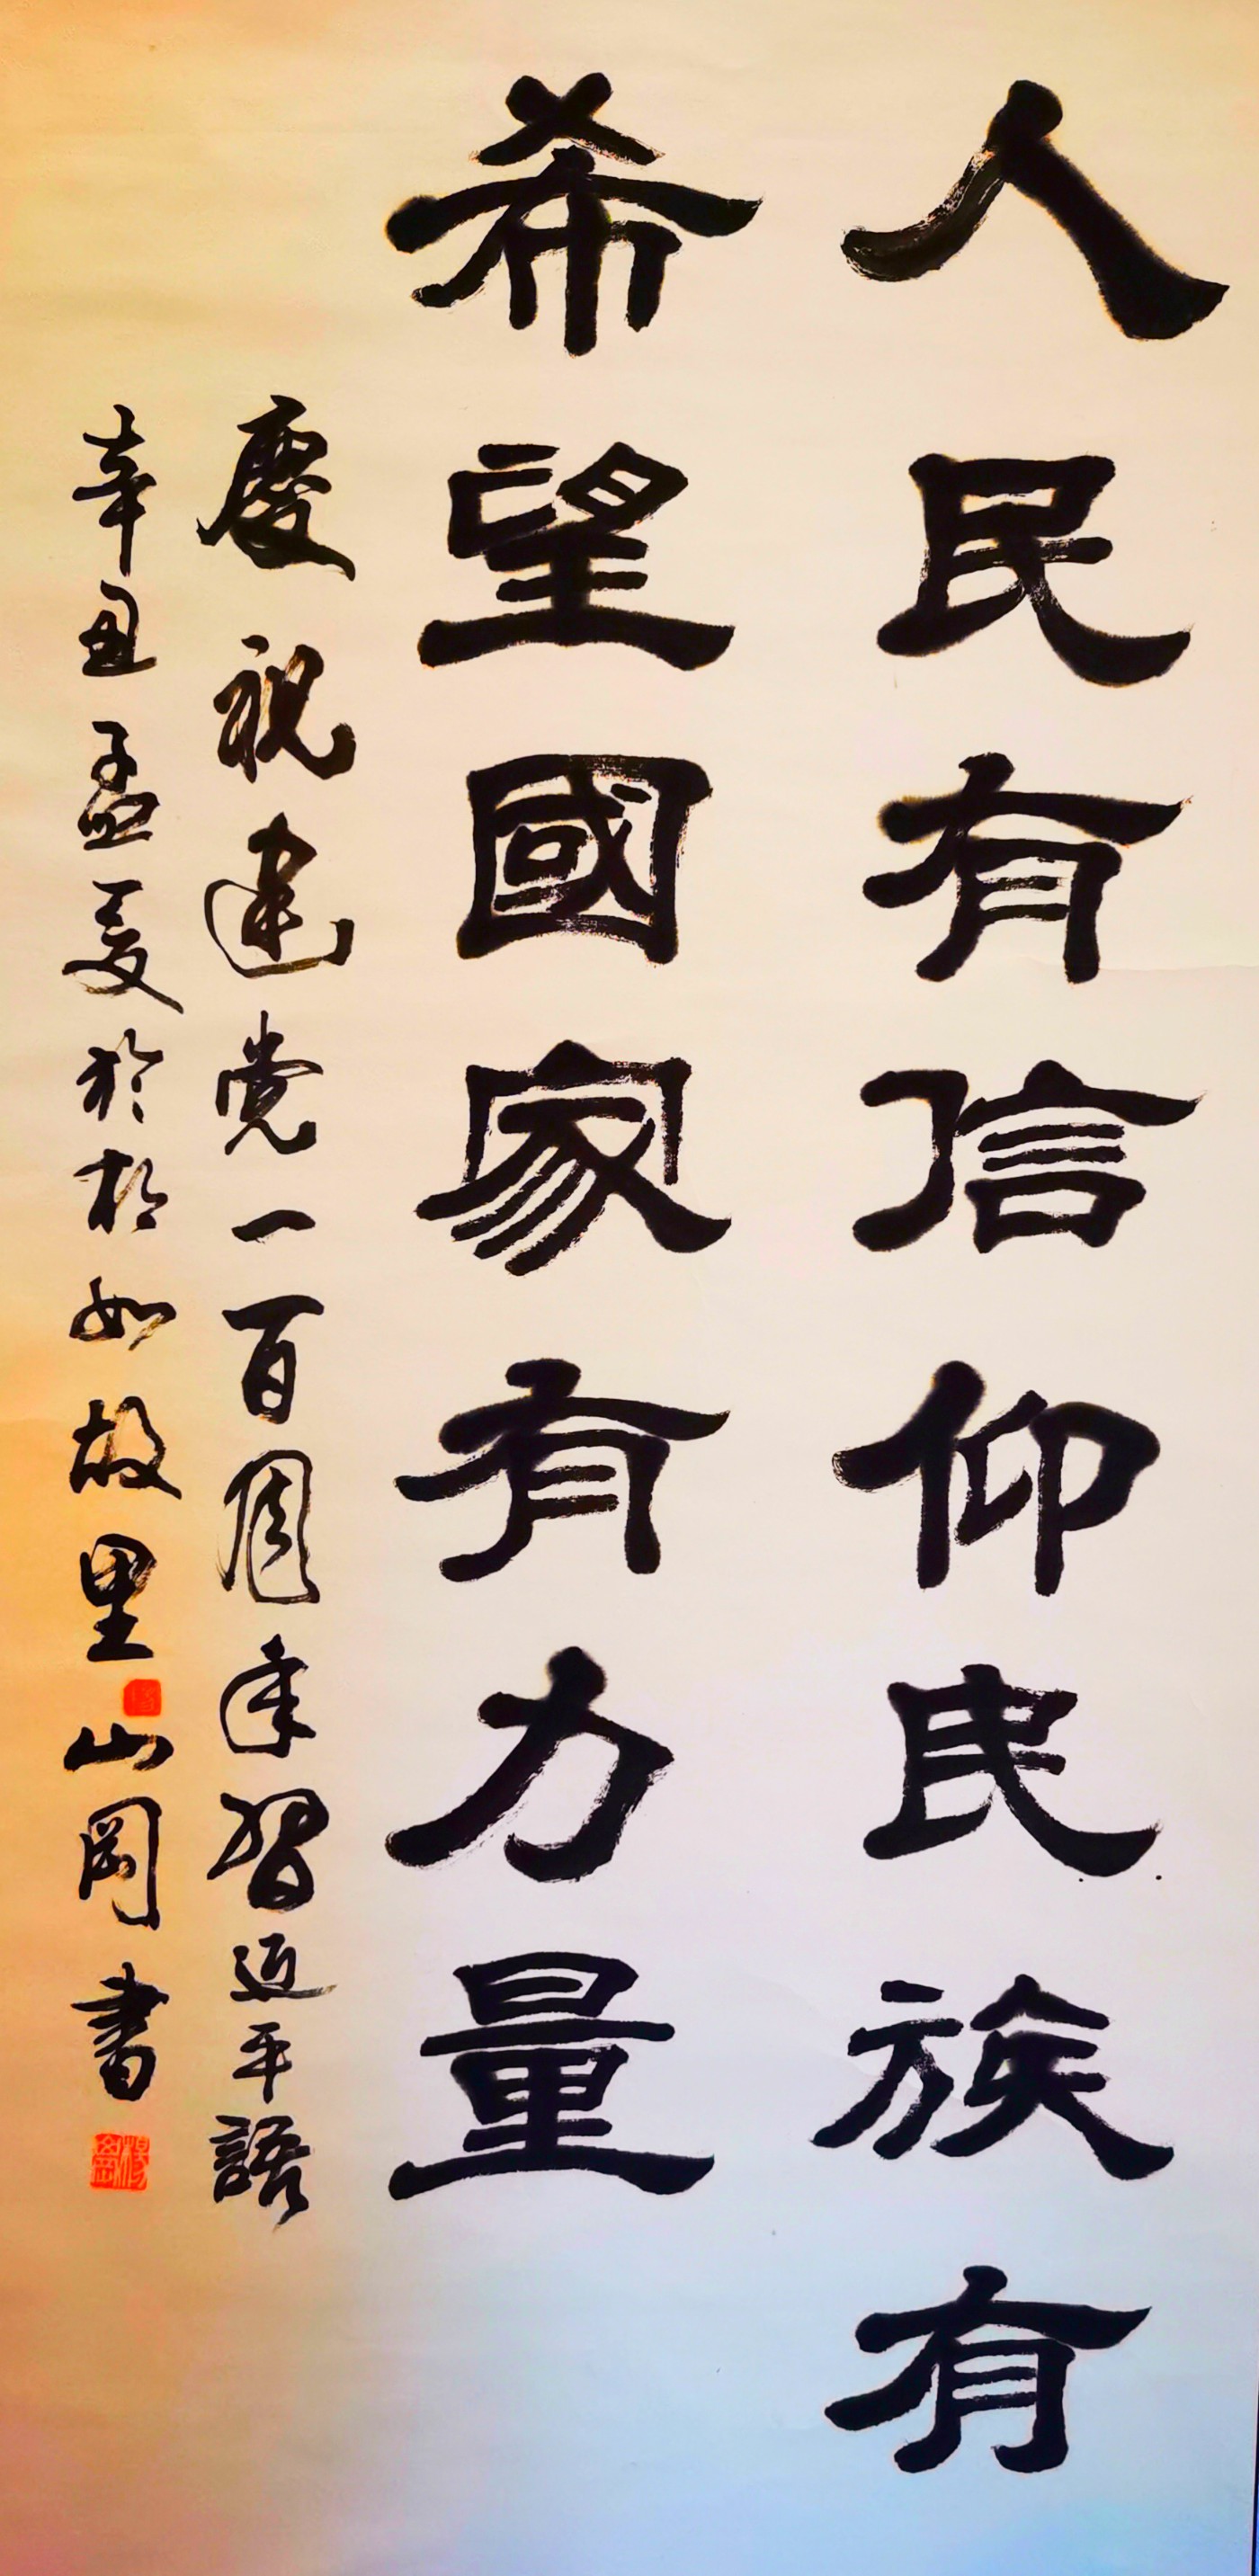 人民有信仰民族有
希望國家有力量
慶祝建党一百周年習近平語
辛丑孟夏於相如故里山岡書